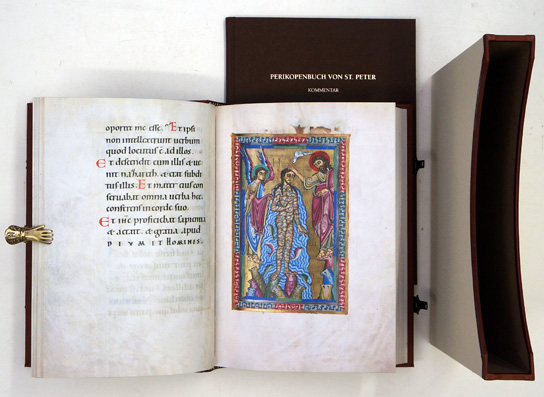 PERIKOPENBUCH VON ST. PETER
KOMMENTAR
oportet me esse. Et ipsi
non intellexerunt uerbum
quod locutus ẽ ad illos.
Et descendit cum illis & ue
nit nazareth. & erat subdi
tus illis. Et mater eius con
seruabat omnia uerba hec
conferens in corde suo.
Et ihc proficiebat sapientia
& aetate. & gratia apud
DEUM ET HOMINES.